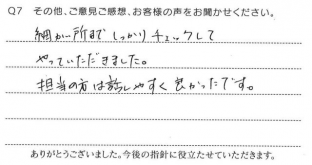 Q7 その他、ご意見ご感想、お客様の声をお聞かせください。
細かい所までしっかりチェックして
やっていただきました。
担当の方は話しやすく良かったです。
ありがとうございました。今後の指針に役立たせていただきます。